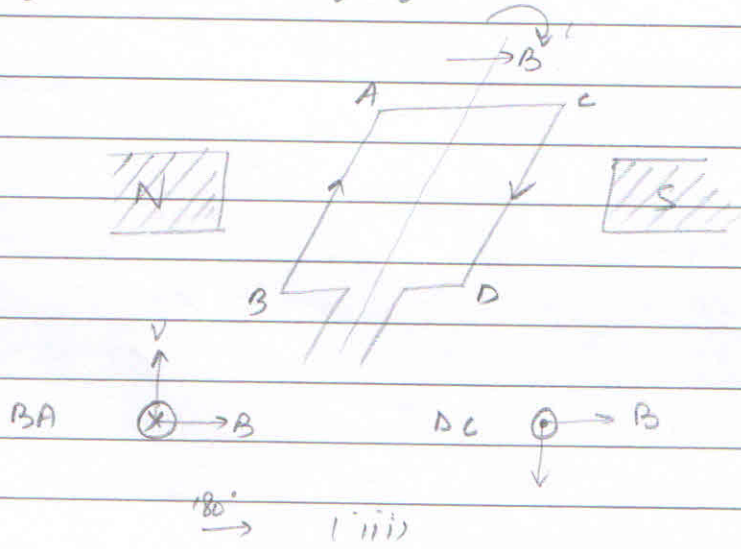 B
A C
N S
B D
V
BA B DC B
180° (iii)